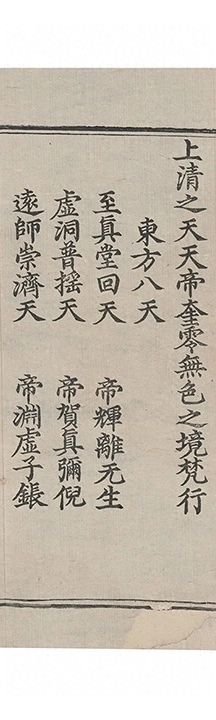 上清之天天帝奎零無色之境梵行
東方八天
至真堂回天 帝輝離无生
虛洞普揺天 帝賀真彌倪
遠師崇濟天 帝淵虛子鋹